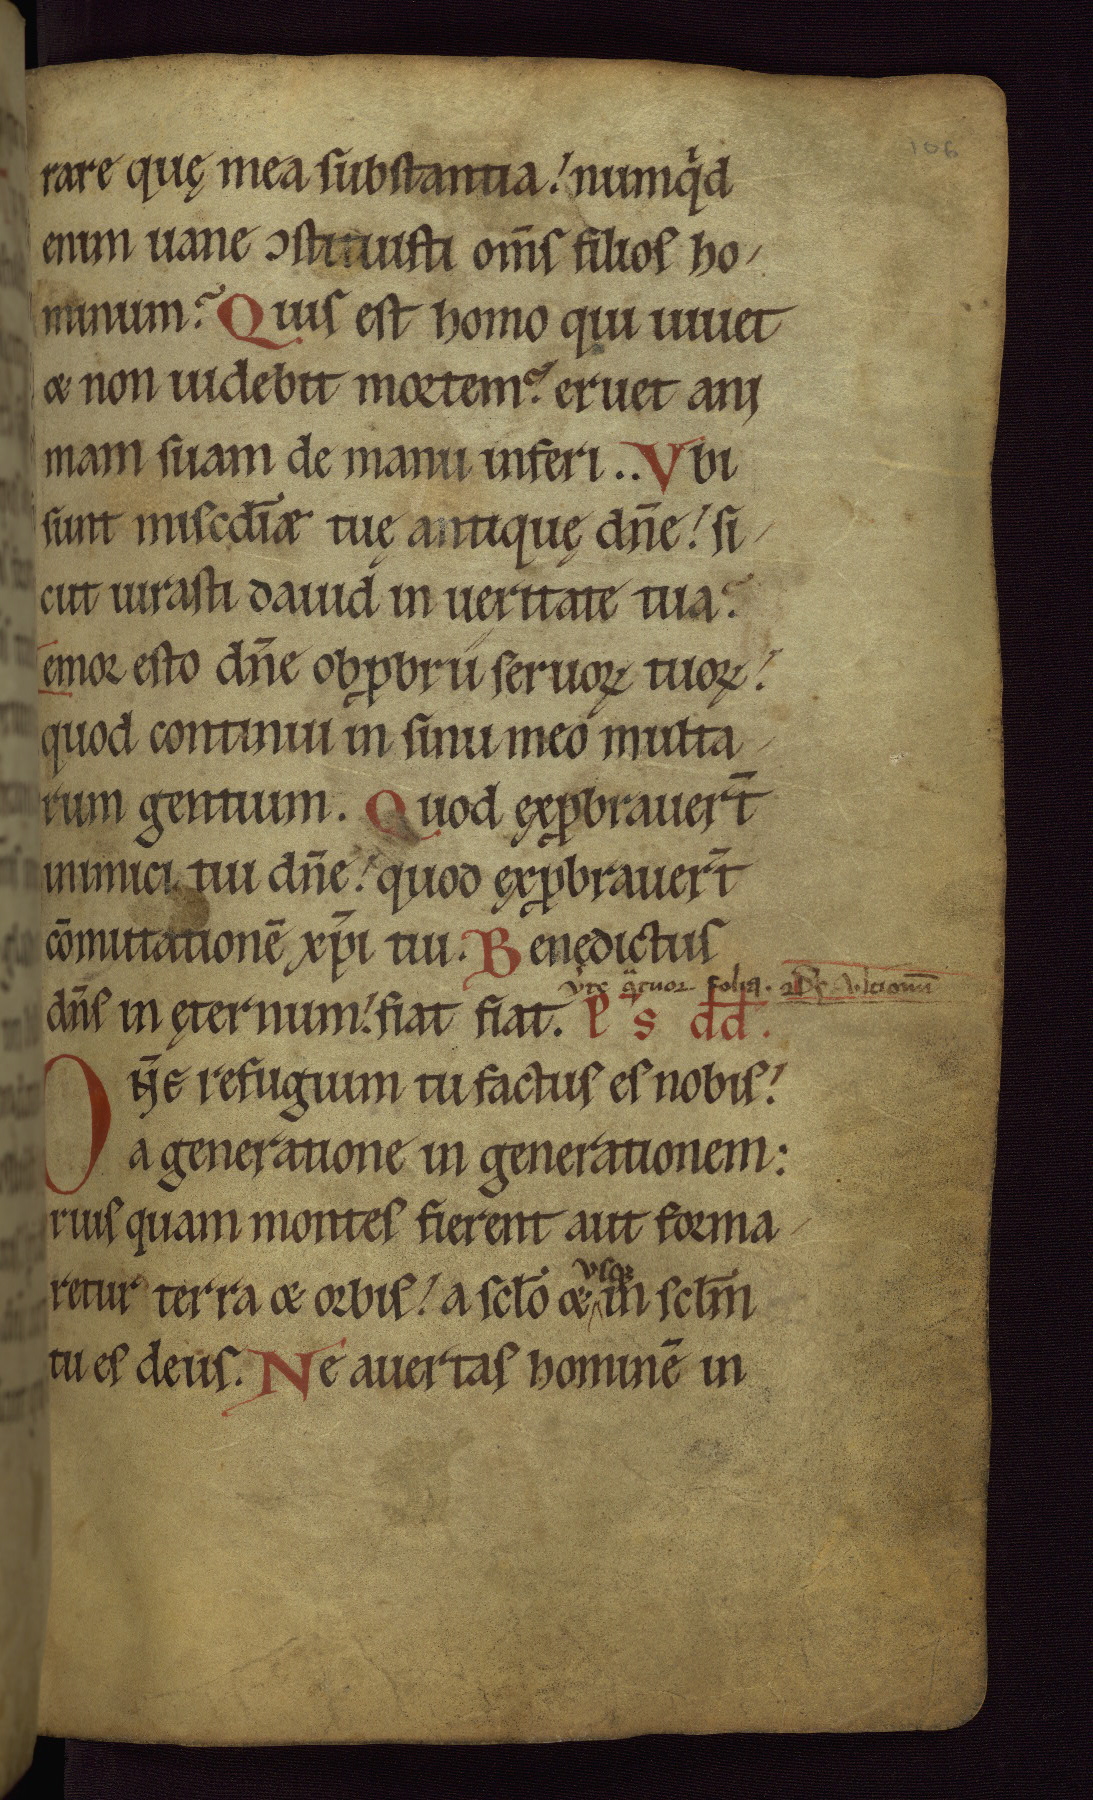 106
rare quę mea substantia! numqͥd
enim uane ↄstituisti om̅s filios ho-
minum? Quis est homo qui uiuet
& non uidebit mortem? eruet ani
mam suam de manu inferi.. Vbi
sunt misc̅diæ tuę antiquę dn̅e! si-
cut iurasti dauid in ueritate tua?
emor esto dn̅e obꝓbriū seruoꝝ tuoꝝ!
quod continui in sinu meo multa-
rum gentium. Quod exꝓbrauer̅t
inimici tui dn̅e! quod exꝓbrauer̅t
cōmutationē xp̅i tui. Benedictus
folia.
dn̅s in ęternum! fiat fiat. P s dd.
Dn̅e refugium tu factus es nobis!
a generatione in generationem:
rius quam montes fierent aut forma-
vsqꝫ
retur terra & orbis! a scl̅o & in scl̅m
tu es deus. Ne auertas hominē in